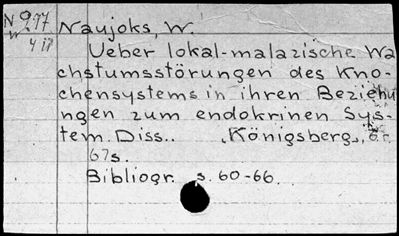 N 977 Naujoks, W.
Ueber lokal-malazische Wa
chstumsstörungen des Kno-
chensystems in ihren Beziehu
ngen zum endokrinen Sys-
tem. Diss.. Königsberg,
67s.
Bibliogr. s. 60-66.